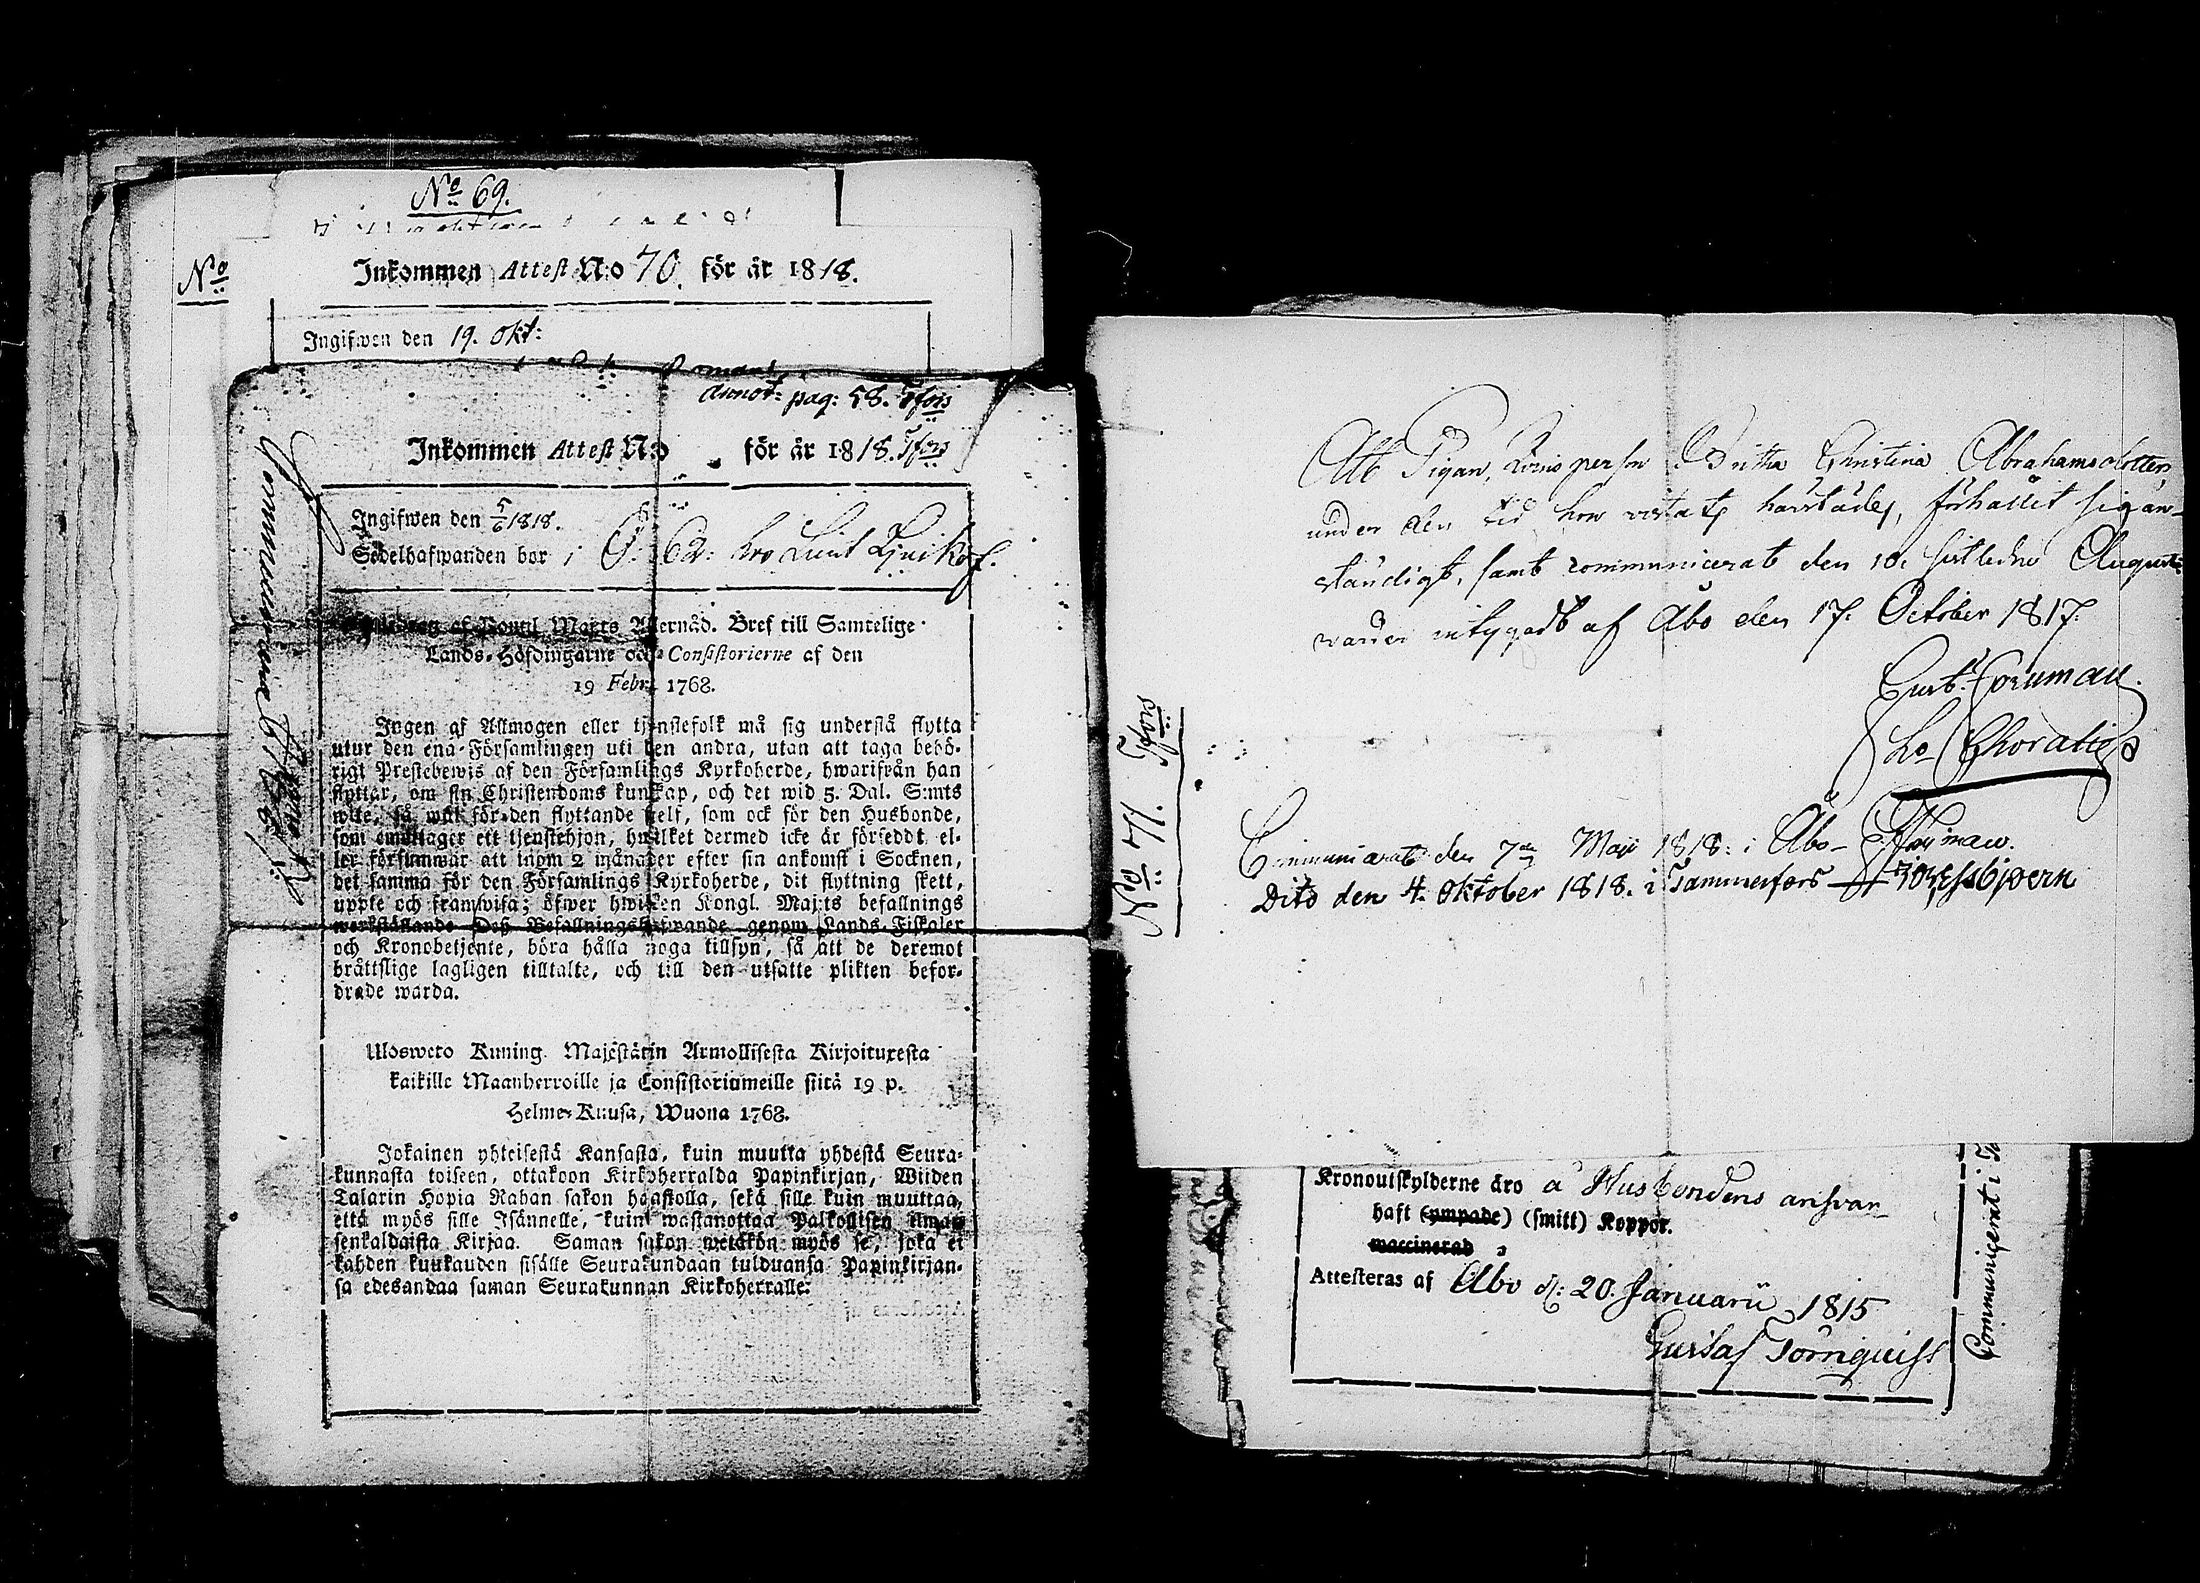 No 69.
No
Inkommen Attest N:o 70. för år 1818.
Ingifwen den 19. Okt:
annot: pag: 58. Tfors
Inkommen Attest N:o för år 1818. Tfors
Ingifwen den 5/6 1818.
Sedelhafwanden bor i
af Kongl. Maj:ts Allernåd. Bref till Samtelige
Lands-Höfdingarne och Consistorierne af den
19 Febr. 1768.
Ingen af Allmogen eller tjenstefolk må sig understå flytta
utur den ena Församlingen uti den andra, utan att taga behö-
rigt Prestebewis af den Församlings Kyrkoherde, hwarifrån han
flyttar, om sin Christendoms kunskap, och det wid 5. Dal. S:mts
wite, så wäl för den flyttande sjelf, som ock för den Husbonde,
som emottager ett tjenstehjon, hwilket dermed icke är förseddt, el-
ler försummar att inom 2 månader efter sin ankomst i Socknen,
det samma för den Församlings Kyrkoherde, dit flyttning skett,
uppte och framwisa; öfwer hwilken Kongl. Maj:ts befallnings
werkställande Deß Befallningshafwande genom Lands-Fiskaler
och Kronobetjente, böra hålla noga tillsyn, så att de deremot
bråttslige lagligen tilltalte, och till den utsatte plikten befor-
drade warda.
Ulosweto Kuning. Majestätin Armollisesta Kirjoituxesta
kaikille Maanherroille ja Consistoriumeille siitä 19 p.
Helme-Kuusa, Wuona 1768.
Jokainen yhteisestä Kansasta, kuin muutta yhdestä Seura-
kunnasta toiseen, ottakoon Kirkoherralda Papinkirjan, Wiiden
Talarin Hopia Rahan sakon haastolla, sekä sille kuin muuttaa,
että myös sille Isännelle, kuin wastanottaa Palkollisen ilman
senkaldaista Kirjaa. Saman sakon wetäkön myös se, joka ei
kahden kuukauden sisälle Seurakundaan tulduansa Papinkirjan-
sa edesandaa saman Seurakunnan Kirkoherralle.
No 71. Tfors
Att Pigan, Britha Christina Abrahamsdotter,
under den tid hon wistats härstädes, förhållit sig an-
ständigt, samt communicerat den 10. sistledne Augusti
warder intygadt af Åbo den 17. October 1817.
Communicerat den 7de Maji 1818. i Åbo
Dito den 4. Oktober 1818. i Tammerfors
Kronoutskylderne äro å Husbondens answar
haft (ympade) (smitt) Koppor.
waccinerad
Attesteras af Åbo d: 20. Januarii 1815
Gustaf Törnquist
Communicerat i